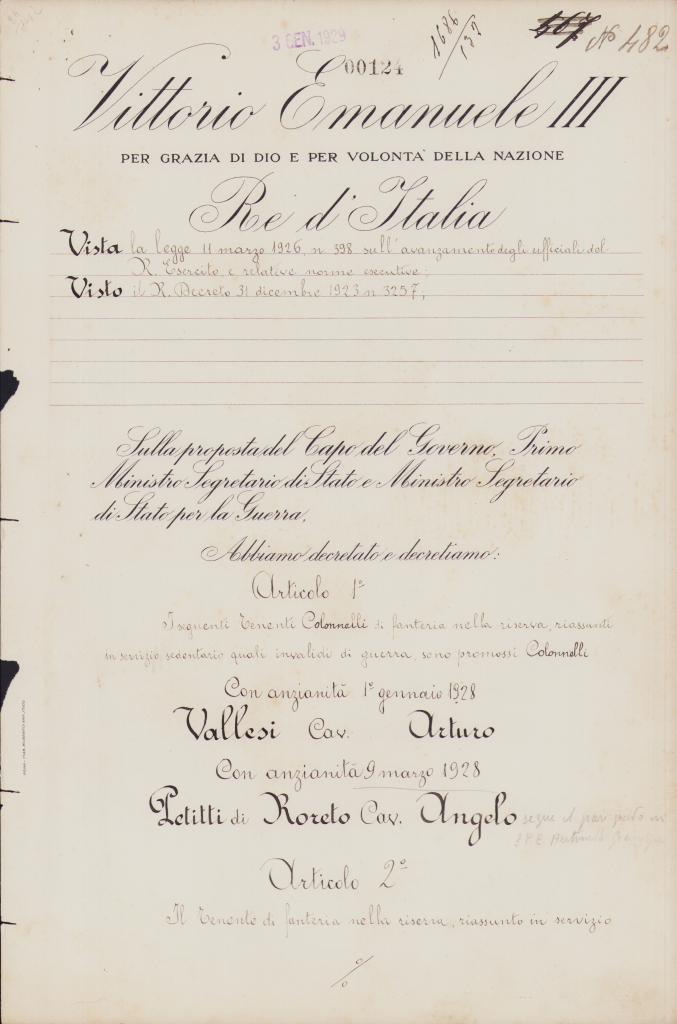 3 GEN. 1929
00124
1686/132
Nº 482
Vittorio Emanuele III
PER GRAZIA DI DIO E PER VOLONTA' DELLA NAZIONE
Re d'Italia
Vista la legge 11 marzo 1926, n 398 sull'avanzamento degli ufficiali del
R. Esercito e relative norme esecutive;
Visto il R. Decreto 31 dicembre 1923 n 3257;
Sulla proposta del Capo del Governo, Primo
Ministro Segretario di Stato e Ministro Segretario
di Stato per la Guerra,
Abbiamo decretato e decretiamo:
Articolo 1º
I seguenti Tenenti Colonnelli di fanteria nella riserva, riassunti
in servizio sedentario quali invalidi di guerra, sono promossi Colonnelli
Con anzianità 1º gennaio 1928
Vallesi Cav. Arturo
Con anzianità 9 marzo 1928
Petitti di Roreto Cav. Angelo
segue il pari grado in
Articolo 2º
Il Tenente di fanteria nella riserva, riassunto in servizio
%